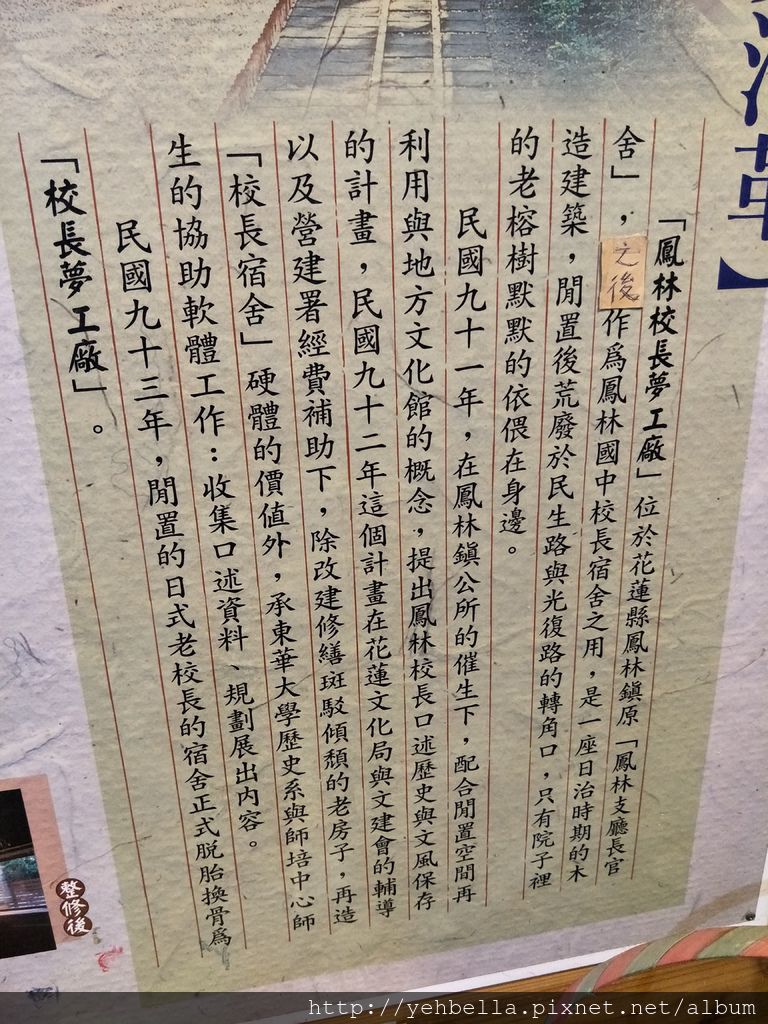 沿革】
「鳳林校長夢工廠」位於花蓮縣鳳林鎮原「鳳林支廳長官
舍」，之後作爲鳳林國中校長宿舍之用，是一座日治時期的木
造建築，閒置後荒廢於民生路與光復路的轉角口，只有院子裡
的老榕樹默默的依偎在身邊。
民國九十一年，在鳳林鎮公所的催生下，配合閒置空間再
利用與地方文化館的概念，提出鳳林校長口述歷史與文風保存
的計畫，民國九十二年這個計畫在花蓮文化局與文建會的輔導
以及營建署經費補助下，除改建修繕斑駁傾頹的老房子，再造
「校長宿舍」硬體的價值外，承東華大學歷史系與師培中心師
生的協助軟體工作：收集口述資料、規劃展出內容。
民國九十三年，閒置的日式老校長的宿舍正式脫胎換骨爲
「校長夢工廠」。
整修後
http://yehbella.pixnet.net/album